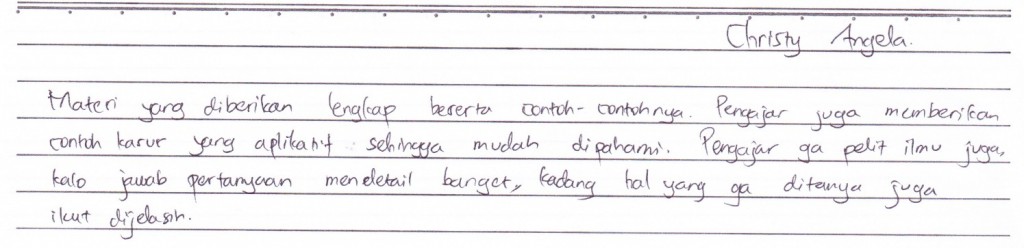 Christy Angela.
Materi yang diberikan lengkap beserta contoh-contohnya. Pengajar juga memberikan
contoh kasus yang aplikatif sehingga mudah dipahami. Pengajar ga pelit ilmu juga,
kalo jawab pertanyaan mendetail banget, kadang hal yang ga ditanya juga
ikut dijelasin.